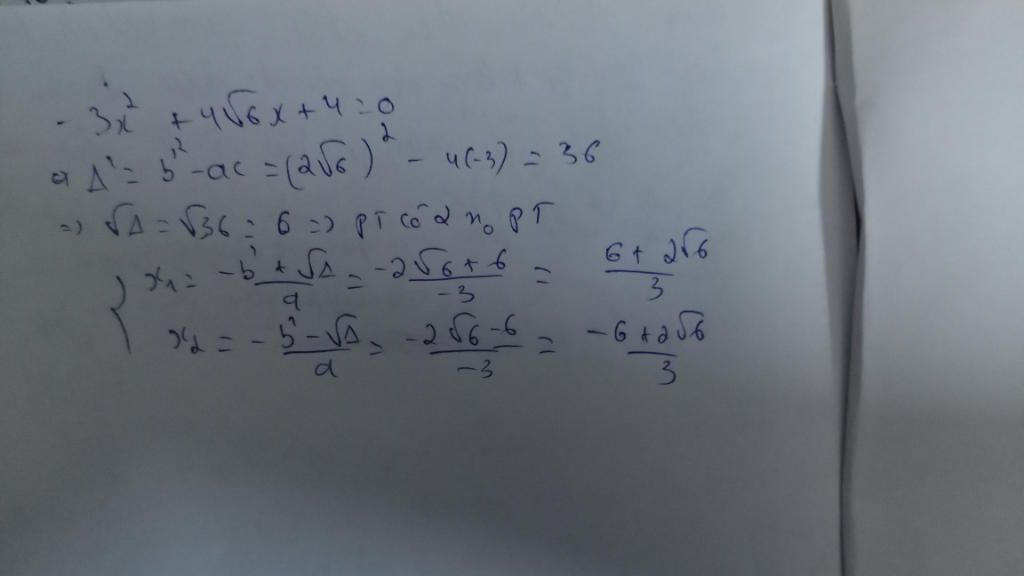 - 3x² + 4√6x + 4 = 0
a Δ' = b'² - ac = (2√6)² - 4(-3) = 36
=> √Δ = √36 = 6 => PT có 2 n₀ PT
x₁ = -b' + √Δ / a = -2√6 + 6 / -3 = 6 + 2√6 / 3
x₂ = -b' - √Δ / a = -2√6 - 6 / -3 = -6 + 2√6 / 3